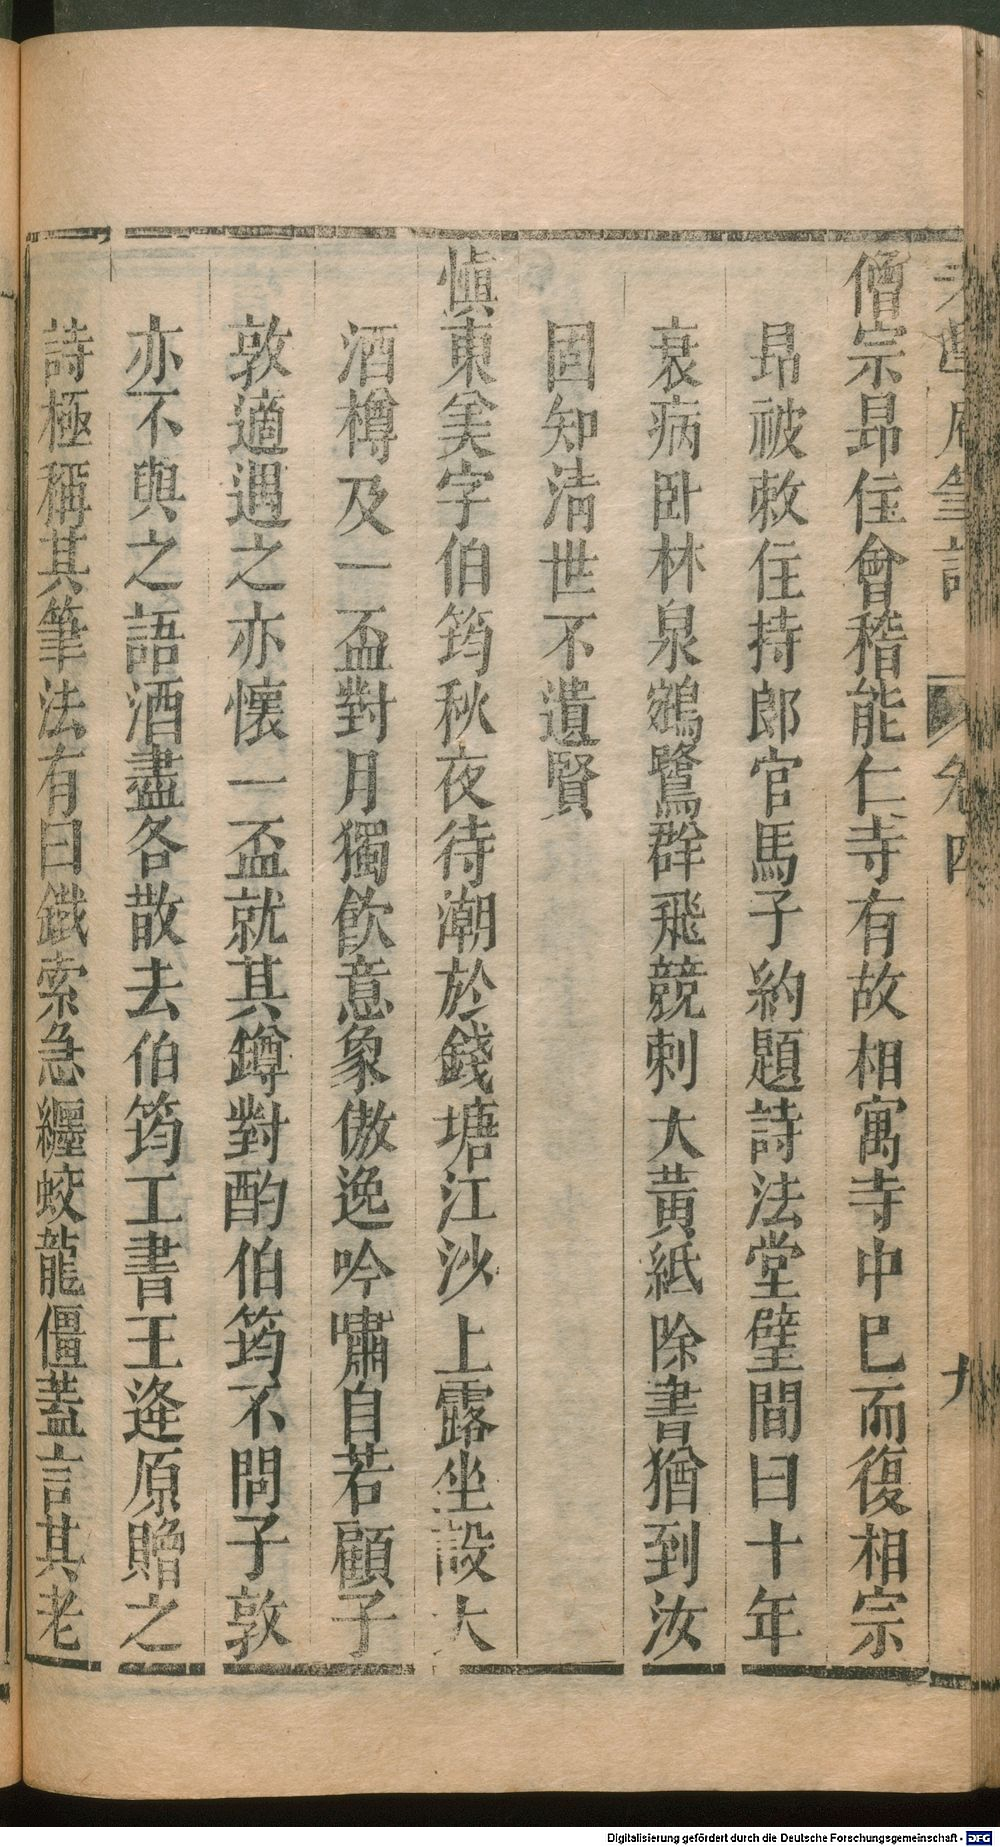 老學庵筆記 卷四 九
僧宗昻住會稽能仁寺有故相寓寺中巳而復相宗
昻被敕住持郎官馬子約題詩法堂壁間曰十年
衰病卧林泉鵷鷺群飛競刺大黃紙除書猶到汝
固知清世不遺賢
愼東美字伯筠秋夜待潮於錢塘江沙上露坐設大
酒樽及一盃對月獨飮意象傲逸吟嘯自若顧子
敦適遇之亦懷一盃就其鐏對酌伯筠不問子敦
亦不與之語酒盡各散去伯筠工書王逄原贈之
詩極稱其筆法有曰鐵索急纏蛟龍僵蓋言其老
Digitalisierung gefördert durch die Deutsche Forschungsgemeinschaft - DFG